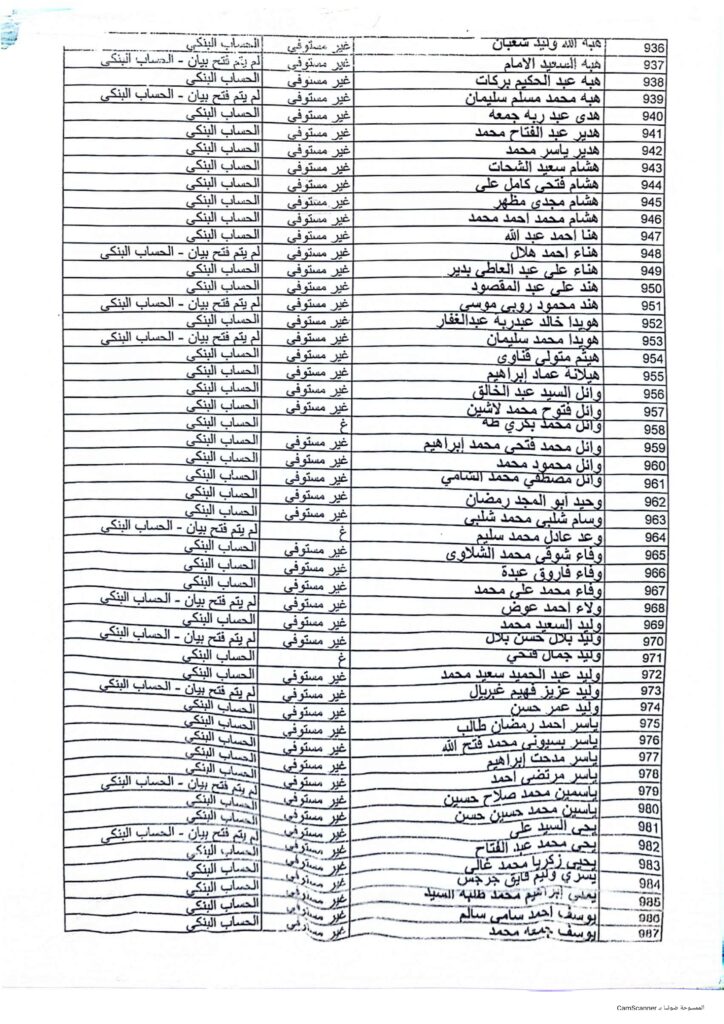 936 هبه الله وليد شعبان غير مستوفي الحساب البنكي
937 هبه السعيد الامام غير مستوفي لم يتم فتح بيان - الحساب البنكي
938 هبه عبد الحكيم بركات غير مستوفي الحساب البنكي
939 هبه محمد مسلم سليمان غير مستوفي لم يتم فتح بيان - الحساب البنكي
940 هدى عبد ربه جمعه غير مستوفي الحساب البنكي
941 هدير عبد الفتاح محمد غير مستوفي الحساب البنكي
942 هدير ياسر محمد غير مستوفي الحساب البنكي
943 هشام سعيد الشحات غير مستوفي الحساب البنكي
944 هشام فتحى كامل على غير مستوفي الحساب البنكي
945 هشام مجدى مظهر غير مستوفي الحساب البنكي
946 هشام محمد احمد محمد غير مستوفي الحساب البنكي
947 هنا احمد عبد الله غير مستوفي الحساب البنكي
948 هناء احمد هلال غير مستوفي لم يتم فتح بيان - الحساب البنكي
949 هناء على عبد العاطى بدير غير مستوفي الحساب البنكي
950 هند على عبد المقصود غير مستوفي الحساب البنكي
951 هند محمود روبي موسى غير مستوفي لم يتم فتح بيان - الحساب البنكي
952 هويدا خالد عبدربة عبدالغفار غير مستوفي الحساب البنكي
953 هويدا محمد سليمان غير مستوفي لم يتم فتح بيان - الحساب البنكي
954 هيثم متولى قناوى غير مستوفي الحساب البنكي
955 هيلانة عماد إبراهيم غير مستوفي الحساب البنكي
956 وائل السيد عبد الخالق غير مستوفي الحساب البنكي
957 وائل فتوح محمد لاشين غير مستوفي الحساب البنكي
958 وائل محمد بكري طه غ الحساب البنكي
959 وائل محمد فتحى محمد إبراهيم غير مستوفي الحساب البنكي
960 وائل محمود محمد غير مستوفي الحساب البنكي
961 وائل مصطفي محمد الشامي غير مستوفي الحساب البنكي
962 وحيد أبو المجد رمضان غير مستوفي الحساب البنكي
963 وسام شلبى محمد شلبى غير مستوفي الحساب البنكي
964 وعد عادل محمد سليم غ لم يتم فتح بيان - الحساب البنكي
965 وفاء شوقى محمد الشلاوى غير مستوفي الحساب البنكي
966 وفاء فاروق عبدة غير مستوفي الحساب البنكي
967 وفاء محمد على محمد غير مستوفي الحساب البنكي
968 ولاء احمد عوض غير مستوفي لم يتم فتح بيان - الحساب البنكي
969 وليد السعيد محمد غير مستوفي الحساب البنكي
970 وليد بلال حسن بلال غير مستوفي لم يتم فتح بيان - الحساب البنكي
971 وليد جمال فتحي غ الحساب البنكي
972 وليد عبد الحميد سعيد محمد غير مستوفي الحساب البنكي
973 وليد عزيز فهيم غبريال غير مستوفي لم يتم فتح بيان - الحساب البنكي
974 وليد عمر حسن غير مستوفي الحساب البنكي
975 ياسر احمد رمضان طالب غير مستوفي الحساب البنكي
976 ياسر بسيونى محمد فتح الله غير مستوفي الحساب البنكي
977 ياسر مدحت إبراهيم غير مستوفي الحساب البنكي
978 ياسر مرتضى احمد غير مستوفي الحساب البنكي
979 ياسمين محمد صلاح حسين غير مستوفي لم يتم فتح بيان - الحساب البنكي
980 ياسين محمد حسين حسن غير مستوفي الحساب البنكي
981 يحى السيد على غير مستوفي الحساب البنكي
982 يحى محمد عبد الفتاح غير مستوفي لم يتم فتح بيان - الحساب البنكي
983 يحيى زكريا محمد غالى غير مستوفي الحساب البنكي
984 يسري وليم فايق جرجس غير مستوفي الحساب البنكي
985 يمنى إبراهيم محمد طلبه السيد غير مستوفي الحساب البنكي
986 يوسف احمد سامى سالم غير مستوفي الحساب البنكي
987 يوسف جمعه محمد غير مستوفي الحساب البنكي
الممسوحة ضوئيا بـ CamScanner